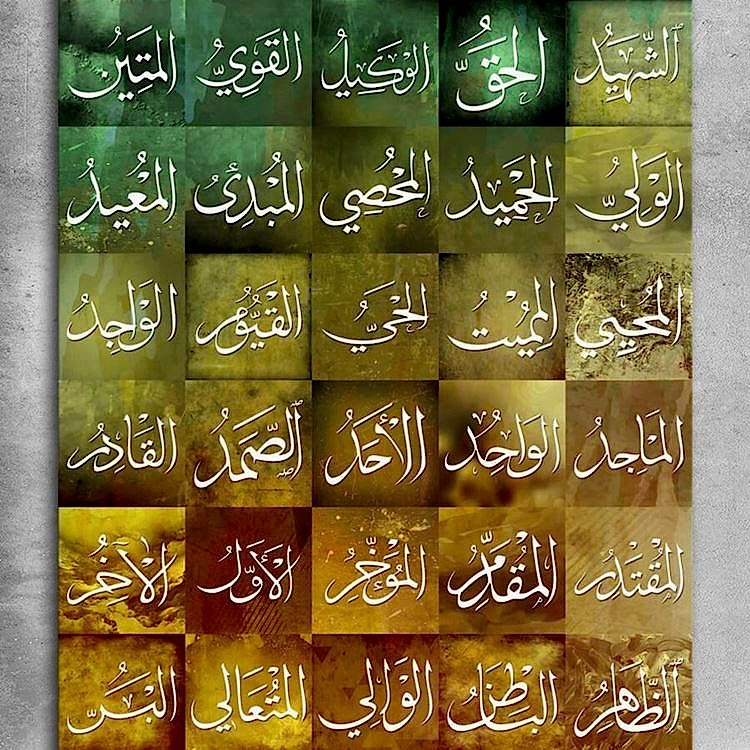 الشَّهِيدُ الحَقُّ الوَكِيلُ القَوِيُّ المَتِينُ
الوَلِيُّ الحَمِيدُ المُحْصِي المُبْدِئُ المُعِيدُ
المُحْيِي المُمِيتُ الحَيُّ القَيُّومُ الوَاجِدُ
المَاجِدُ الوَاحِدُ الأَحَدُ الصَّمَدُ القَادِرُ
المُقْتَدِرُ المُقَدِّمُ المُؤَخِّرُ الأَوَّلُ الآخِرُ
الظَّاهِرُ البَاطِنُ الوَالِي المُتَعَالِي البَرُّ